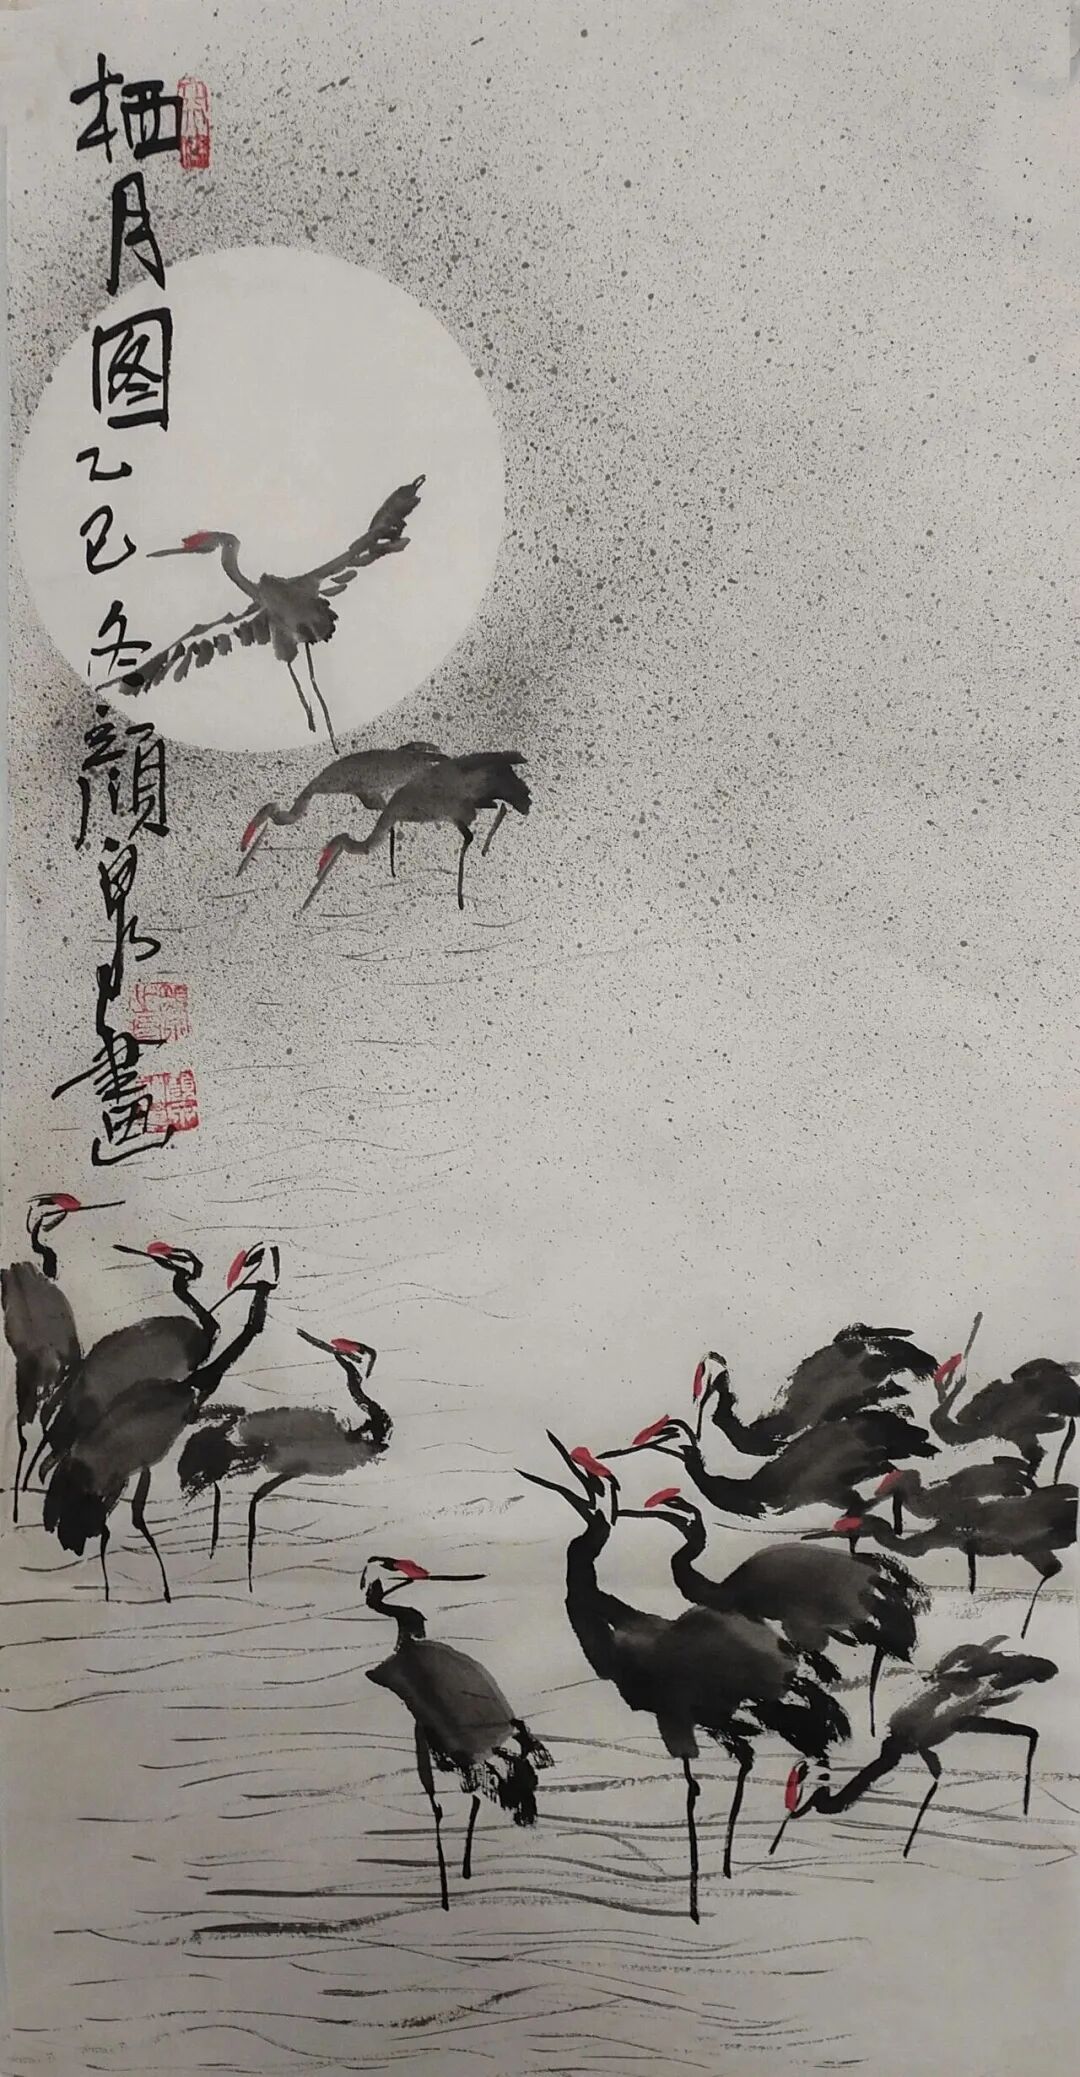 栖月图乙巳冬颜泉畫